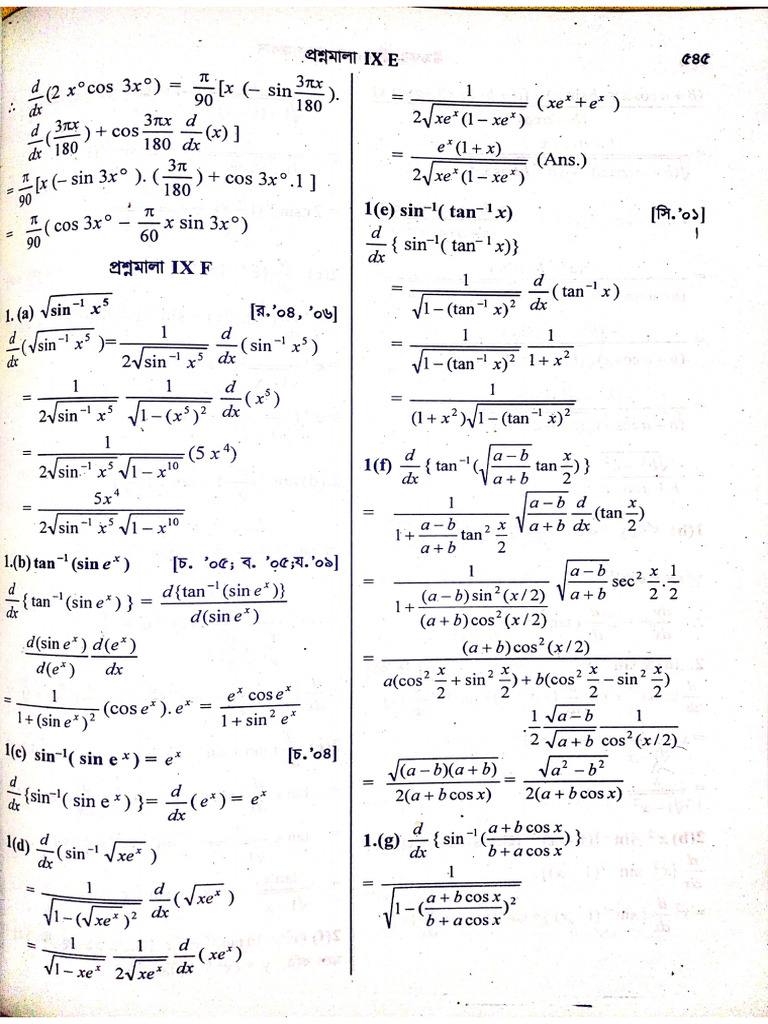 প্রশ্নমালা IX E ৫৪৫
∴ d/dx (2 x° cos 3x°) = π/90 [x (− sin 3πx/180).
d/dx (3πx/180) + cos 3πx/180 d/dx (x) ]
= π/90 [x (− sin 3x° ). (3π/180) + cos 3x° .1 ]
= π/90 ( cos 3x° − π/60 x sin 3x°)
প্রশ্নমালা IX F
1. (a) √(sin⁻¹ x⁵) [রা.'০৪, '০৬]
d/dx (√(sin⁻¹ x⁵) )= 1/(2√(sin⁻¹ x⁵)) d/dx ( sin⁻¹ x⁵ )
= 1/(2√(sin⁻¹ x⁵)) 1/√(1 − (x⁵)²) d/dx ( x⁵ )
= 1/(2√(sin⁻¹ x⁵) √(1 − x¹⁰)) (5 x⁴)
= 5x⁴/(2√(sin⁻¹ x⁵) √(1 − x¹⁰))
1.(b) tan⁻¹ (sin eˣ ) [চ. '০৫; ব. '০৫;য.'০৯]
d/dx {tan⁻¹(sin eˣ ) } = d{tan⁻¹(sin eˣ)}/d(sin eˣ)
d(sin eˣ)/d(eˣ) d(eˣ)/dx
= 1/(1+ (sin eˣ)²) (cos eˣ ). eˣ = eˣ cos eˣ/(1 + sin² eˣ)
1(c) sin⁻¹( sin e ˣ ) = eˣ [চ.'০৪]
d/dx {sin⁻¹( sin e ˣ ) }= d/dx ( eˣ ) = eˣ
1(d) d/dx (sin⁻¹ √(xeˣ) )
= 1/√(1 − (√(xeˣ))²) d/dx ( √(xeˣ) )
= 1/√(1 − xeˣ) 1/(2√(xeˣ)) d/dx ( xeˣ)
= 1/(2√(xeˣ(1 − xeˣ))) ( xeˣ + eˣ )
= eˣ(1 + x)/(2√(xeˣ(1 − xeˣ))) (Ans.)
1(e) sin⁻¹( tan⁻¹ x) [সি.'০১]
d/dx { sin⁻¹( tan⁻¹ x)}
= 1/√(1 − (tan⁻¹ x)²) d/dx ( tan⁻¹ x )
= 1/√(1 − (tan⁻¹ x)²) 1/(1 + x²)
= 1/((1 + x²)√(1 − (tan⁻¹ x)²))
1(f) d/dx { tan⁻¹(√((a − b)/(a + b)) tan x/2 ) }
= 1/(1 + (a − b)/(a + b) tan² x/2) √((a − b)/(a + b)) d/dx (tan x/2 )
= 1/(1 + ((a − b) sin² (x / 2))/((a + b) cos² (x / 2))) √((a − b)/(a + b)) sec² x/2 . 1/2
= (a + b) cos² (x / 2)/(a(cos² x/2 + sin² x/2 ) + b(cos² x/2 − sin² x/2 ))
. 1/2 √(a − b)/√(a + b) 1/cos² (x / 2)
= √((a − b)(a + b))/(2(a + b cos x)) = √(a² − b²)/(2(a + b cos x))
1.(g) d/dx { sin⁻¹( (a + b cos x)/(b + a cos x) ) }
= 1/√(1 − ((a + b cos x)/(b + a cos x))²)